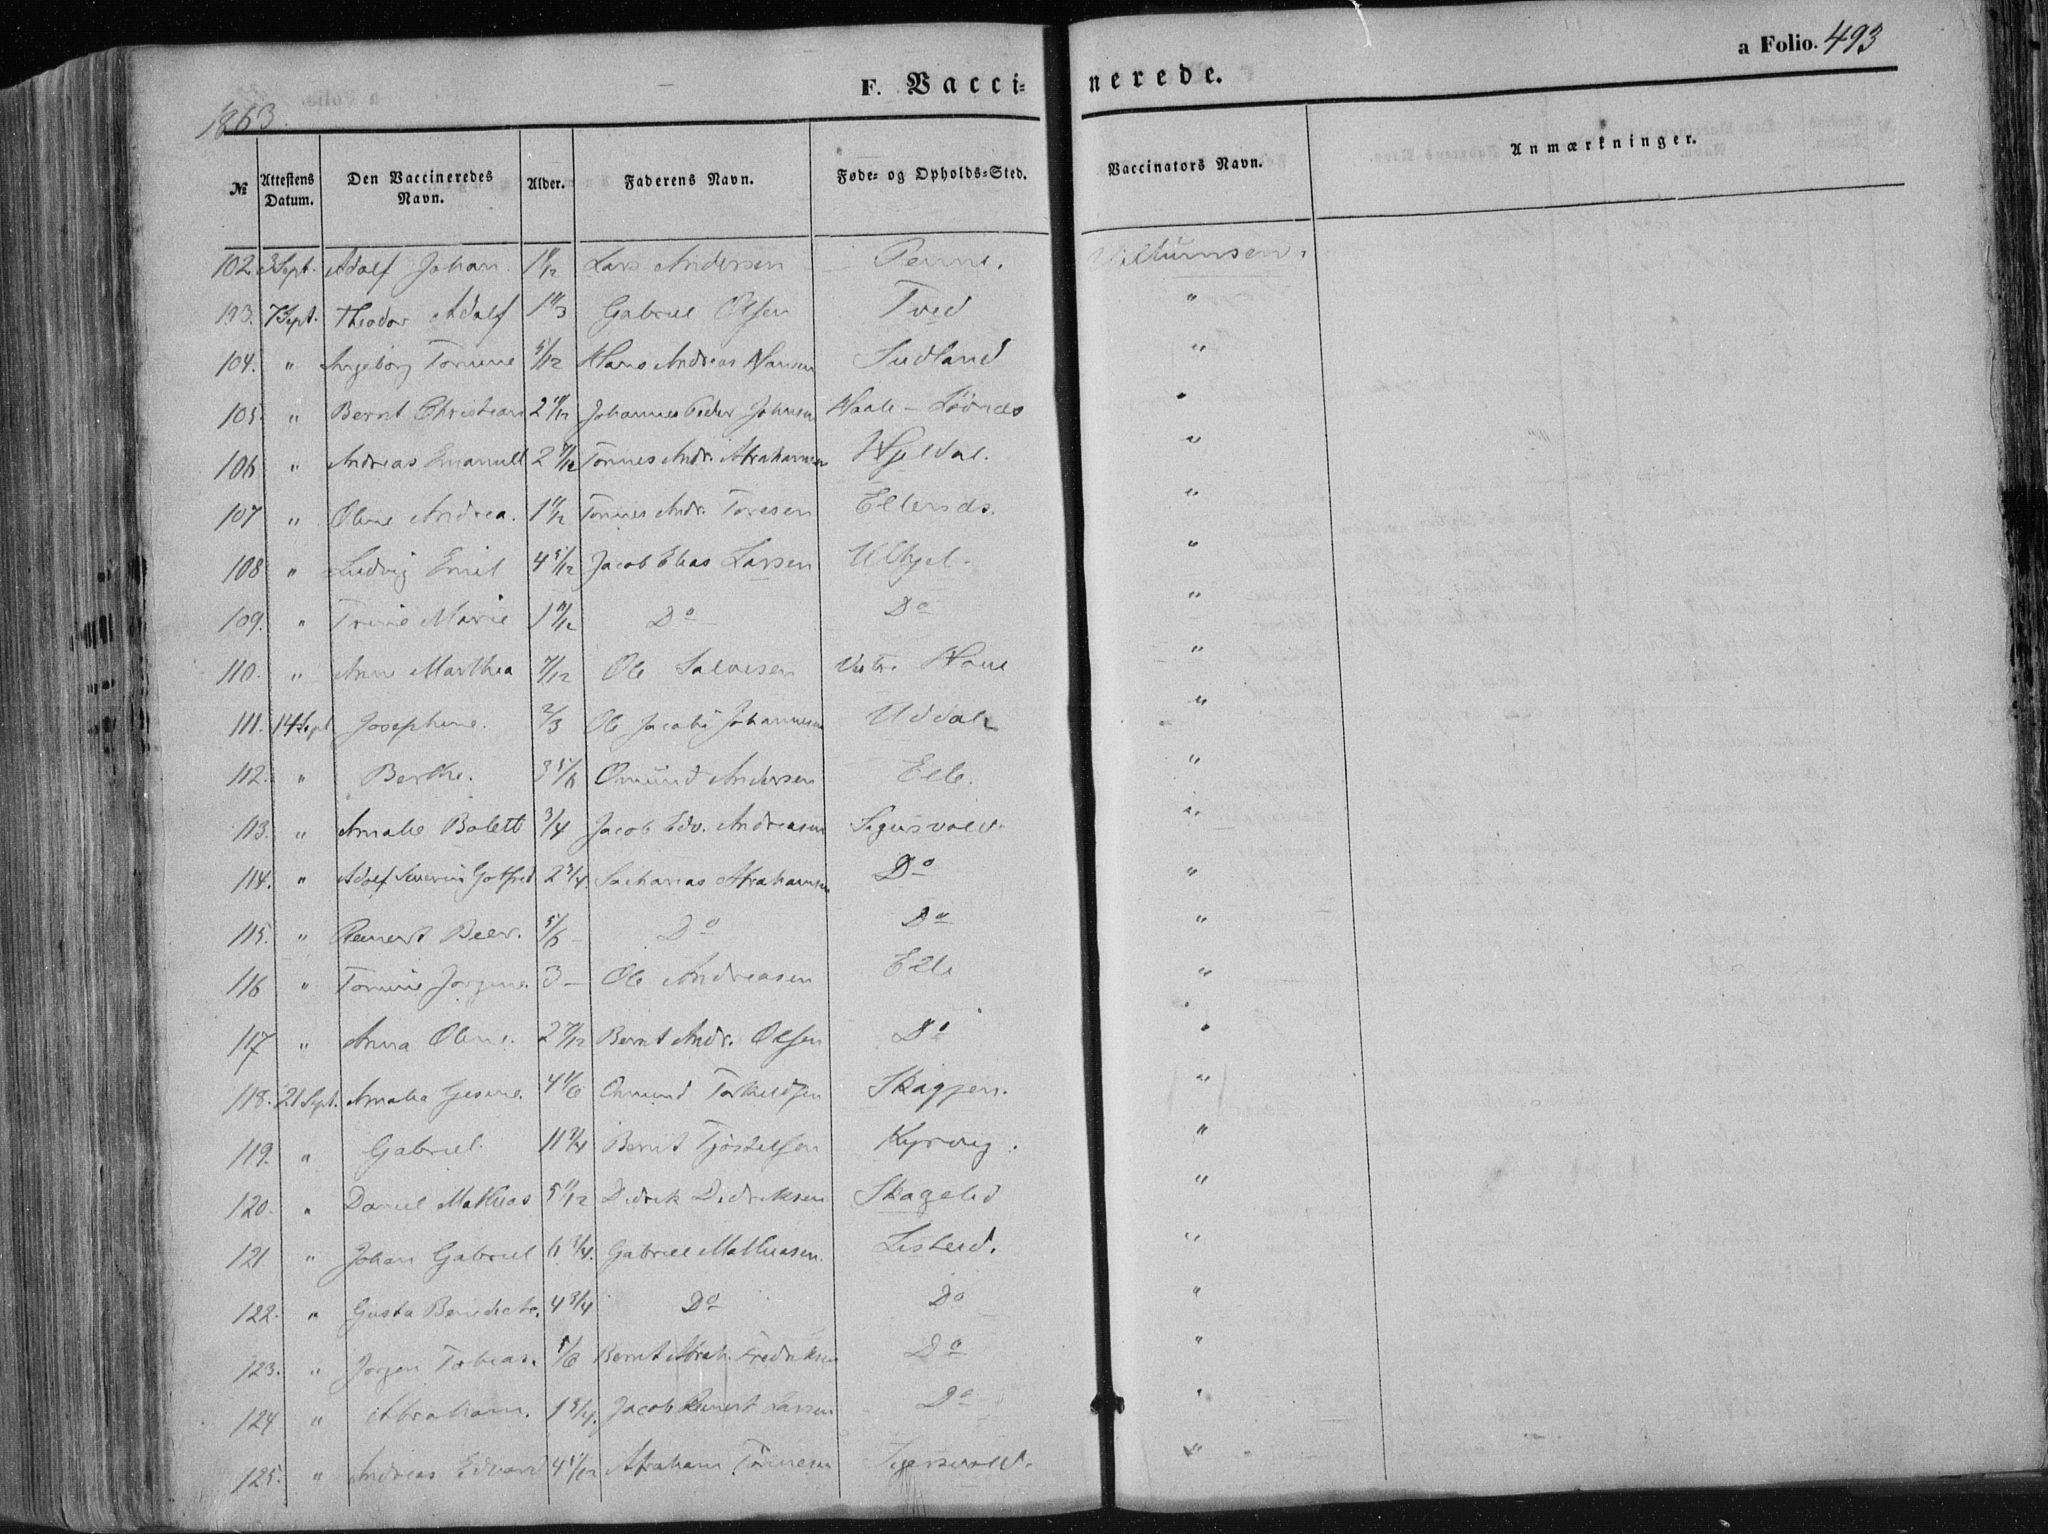 a Folio. 493
F. Vaccinerede.
1863.
№ Attestens Datum. Den Vaccineredes Navn. Alder. Faderens Navn. Føde- og Opholds-Sted. Vaccinators Navn. Anmærkninger.
102. 3 Sept. Adolf Johan. 1 11/12 Lars Andersen Penne. Villumsen.
103. 7 Sept. Theodor Adolf Gabriel Olsen Tved "
104. " Ingeborg Tomine 5/12 Hans Andreas Hansen Sudland "
105. " Bernt Christian Johannes Peder Johnsen "
106 " Andreas Emanuel 2 7/12 Tønnes Andr. Abrahamsen "
107 " Oline Andrea. 1 11/12 Tønnes Andr. Toresen "
108 " Ludvig Emil 4 5/12 Jacob Elias Larsen "
109. " Trine Marie Do Do "
110. " Ane Marthea 7/12 Ole Salvesen Vestre Hane "
111. 14 Sept Josephine. 2/3 Ole Jacob Johannesen Uddal "
112. " Berthe. 3 5/6 Omund Andersen Elle. "
113. " Amalie Bolett 3/4 Jacob Edv. Andreasen Sigersvold. "
114. " Adolf Severin Gotfred 2 3/4 Sacharias Abrahamsen Do "
115. " Reinert Beer. 5/6 Do Do "
116 " Tomine Jorgine. 3 Ole Andreasen Elle "
117 " Anna Oline. 2 7/12 Bernt Andr. Olsen Do "
118. 21 Sept. Amalia Gesine. 4 1/6 Omund Torkeldsen Skagjen. "
119. " Gabriel. 11 3/4 Bernt Tjøstelsen Kyrvig. "
120. " Daniel Mathias 5 11/12 Didrik Didriksen Skagelid "
121 " Johan Gabriel 6 3/4. Gabriel Mathiasen. Listeid. "
122. " Gusta Benedicte. 4 3/4 Do Do "
123. " Jorgen Tobias. 5/6 Bernt Abrah. Fredriksen Do "
124 " Abraham. 1 3/4. Jacob Reinert Larsen Do "
125. " Andreas Edvard Abraham Tønnesen Sigersvold. "